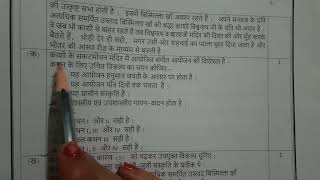 के उत्कृष्ट सभा होती है । इसमें बिस्मिल्ला खाँ अवश्य रहते हैं । अपने मजहब के प्रति
अत्यधिक समर्पित उस्ताद बिस्मिल्ला खाँ की श्रद्धा काशी विश्वनाथ जी के प्रति भी अपार है ।
वे जब भी काशी से बाहर रहते हैं तब विश्वनाथ व बालाजी मंदिर की दिशा की ओर मुँह करके
बैठते हैं, थोड़ी देर ही सही, मगर उसी ओर शहनाई का प्याला घुमा दिया जाता है और
भीतर की आस्था रीड के माध्यम से बजती है ।
(क) काशी के संकटमोचन मंदिर में आयोजित संगीत आयोजन की विशेषता है । 1
कथन के लिए उचित विकल्प का चयन कीजिए -
यह आयोजन हनुमान जयंती के अवसर पर होता है ।
यह आयोजन पाँच दिनों तक चलता है ।
यह प्राचीन संस्कृति है ।
शास्त्रीय एवं उपशास्त्रीय गायन-वादन होता है ।
कथन I और II सही हैं ।
I, II और III सही हैं ।
II और III सही हैं ।
I और IV सही हैं ।
(ख) कारण (R) को पढ़कर उपयुक्त विकल्प चुनिए - 1
संस्कृति के प्रतीक थे ।
समर्पित उस्ताद बिस्मिल्ला खाँ